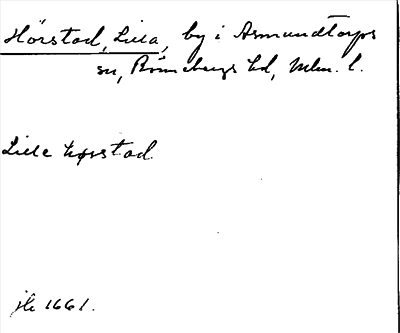 Hörstad, Lilla, by i Asmundtorps
sn, Rönnebergs hd, Mlm. l.
Lille hørstad
jb 1661.